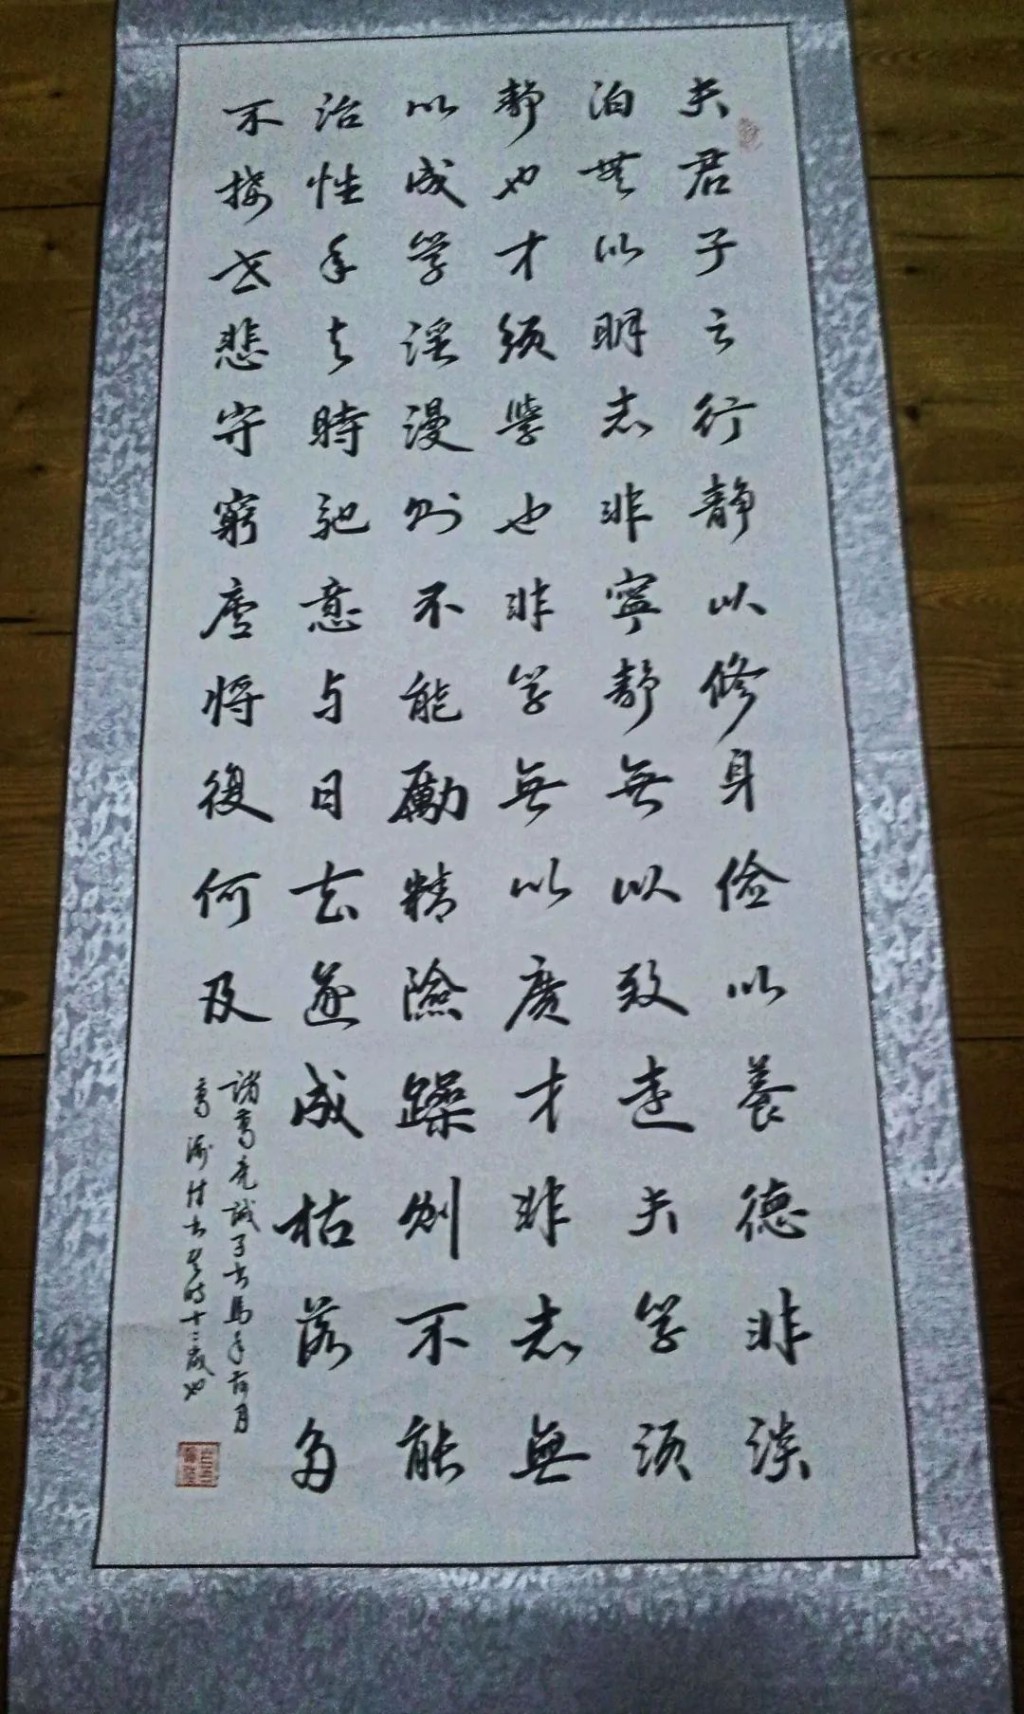 夫君子之行静以修身俭以養德非淡
泊無以明志非寧静無以致远夫学须
静也才须學也非学無以廣才非志無
以成学淫漫则不能勵精險躁则不能
治性年与時馳意与日去遂成枯落多
不接世悲守窮廬将復何及
諸葛亮誡子书馬年
书时十二歲也